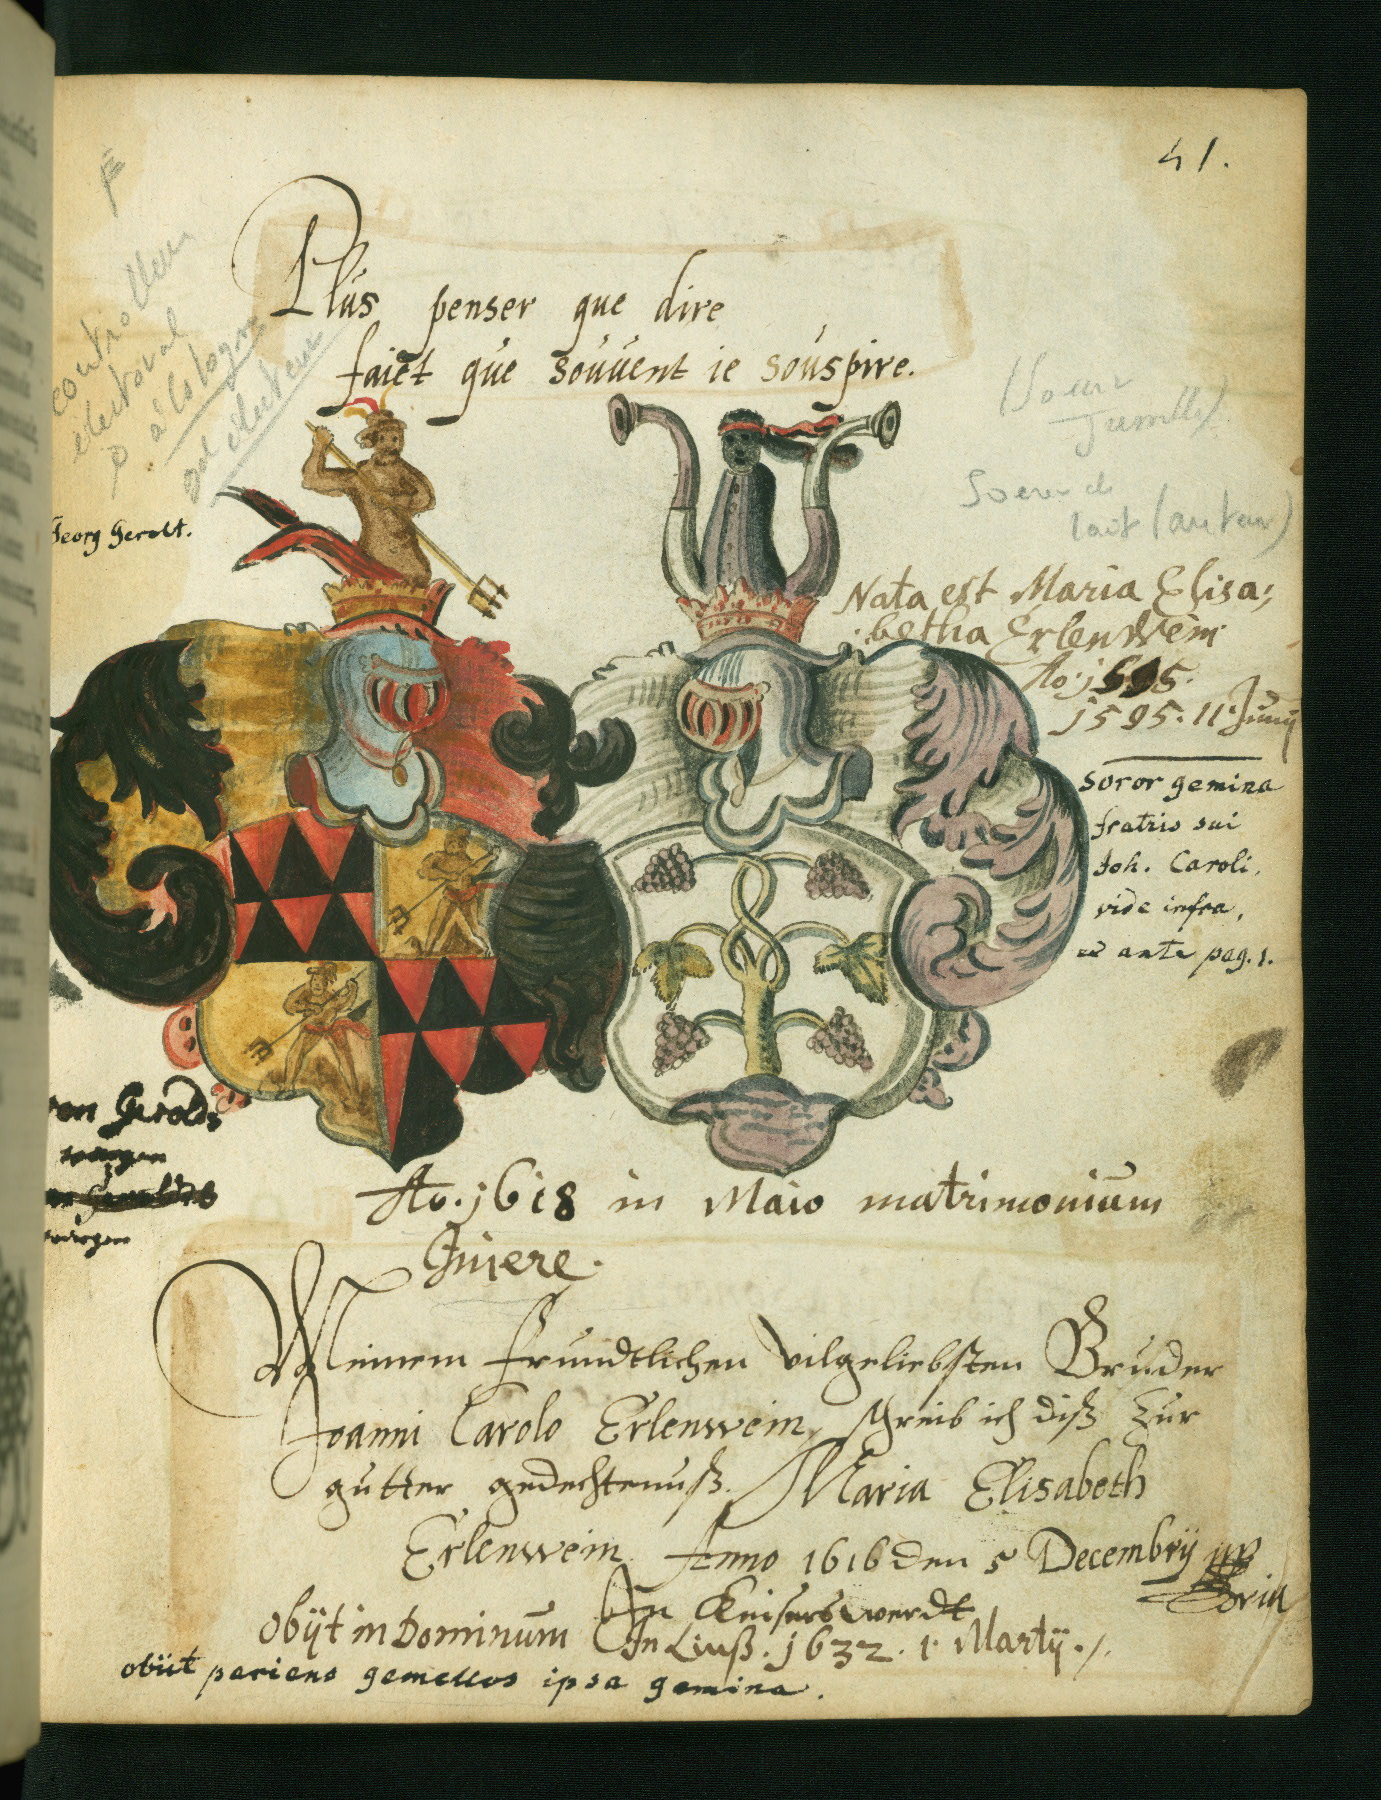 41.
Plus penser que dire
faict que souuent ie souspire.
controlleur
électoral
à Cologne
Georg Gerolt.
Soeur
Jumelle
Soeur de
lait (auteur)
Nata est Maria Elisa:
betha Erlenwein
Ao. 1595.
1595. 11. Junij
soror gemina
fratris sui
Joh. Caroli,
vide infra,
et ante pag. 1.
von Gerolds
wapen
Ao. 1618 in Maio matrimonium
Iniere.
Meinem freundtlichen vilgeliebsten Bruder
Joanni Carolo Erlenwein, schreib ich diß zur
gutter gedechtenuß. Maria Elisabeth
Erlenwein. Anno 1616 den 5 Decembrij
In Keiserswerdt
obijt in Dominum In Linß. 1632. 1. Martij.
obiit pariens gemellos ipsa gemina.